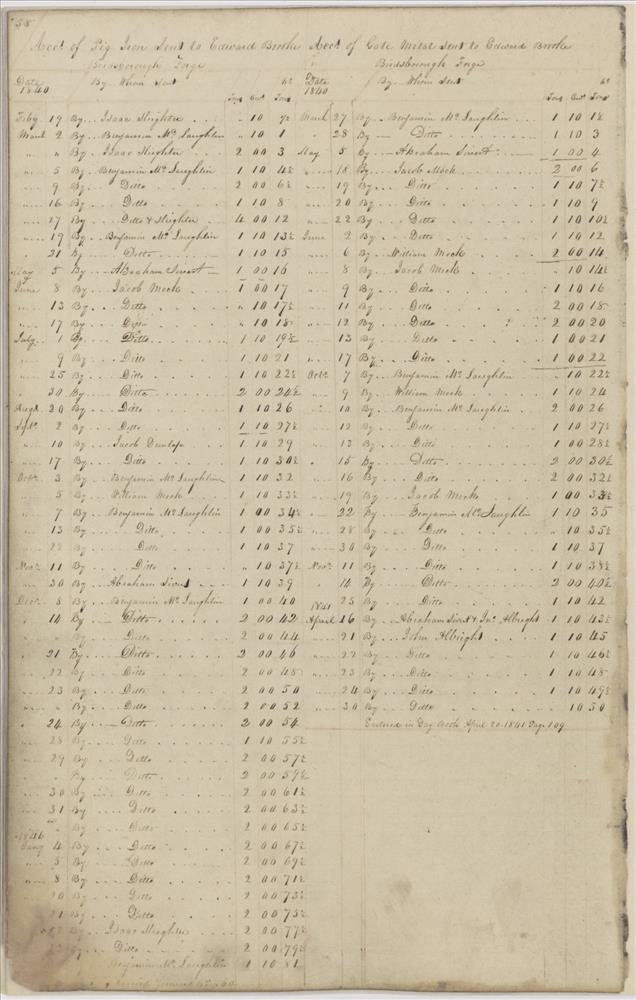 58
Acct. of Pig Iron Sent to Edward Brooke
Birdsborough Forge
Date By Whom Sent
1840 Tons Cwt Tons
Feby 19 By Isaac Sleighter " 10 ½
March 2 By Benjamin Mc Laughlin " 10 1
" " By Isaac Sleighter 2 00 3
" 5 By Benjamin Mc Laughlin 1 10 4½
" 9 By Ditto 2 00 6½
" 16 By Ditto 1 10 8
" 17 By Ditto & Sleighter 4 00 12
" 19 By Benjamin Mc Laughlin 1 10 13½
" 21 By Ditto 1 10 15
May 5 By Abraham Sivert 1 00 16
June 8 By Jacob Mock 1 00 17
" 13 By Ditto " 10 17½
" 17 By Ditto " 10 18
July 1 By Ditto 1 10 19½
" 9 By Ditto 1 10 21
" 25 By Ditto 1 10 22½
" 30 By Ditto 2 00 24½
Augt 20 By Ditto 1 10 26
Sept. 2 By Ditto 1 10 27½
" 10 By Jacob Dunlap 1 10 29
" 17 By Ditto 1 10 30½
Octr. 3 By Benjamin Mc Laughlin 1 10 32
5 By William Mock 1 10 33½
" 7 By Benjamin Mc Laughlin 1 00 34½
" 13 By Ditto 1 00 35½
" 28 By Ditto 1 10 37
Novr. 11 By Ditto " 10 37½
" 30 By Abraham Sivert 1 10 39
Decr. 8 By Benjamin Mc Laughlin 1 00 40
" 14 By Ditto 2 00 42
" " By Ditto 2 00 44
21 By Ditto 2 00 46
" 22 By Ditto 2 00 48
" 23 By Ditto 2 00 50
" " By Ditto 2 00 52
" 24 By Ditto 2 00 54
" 28 By Ditto 1 10 55½
" 29 By Ditto 2 00 57½
" By Ditto 2 00 59½
" 30 By Ditto 2 00 61½
" 31 By Ditto 2 00 63½
" By Ditto 2 00 65½
Jany 4 By Ditto 2 00 67½
" 5 By Ditto 2 00 69½
" 8 By Ditto 2 00 71½
20 By Ditto 2 00 73½
21 By Ditto 2 00 75½
By Isaac Sleighter 2 00 77½
Ditto 2 00 79½
Benjamin Mc Laughlin 1 10 81
Acct. of Gate Metal Sent to Edward Brooke
Birdsborough Forge
Date By Whom Sent
1840 Tons Cwt Tons
March 27 By Benjamin Mc Laughlin 1 10 1½
" 28 By Ditto 1 10 3
May 5 By Abraham Sivert 1 00 4
" 18 By Jacob Mock 2 00 6
" 19 By Ditto 1 10 7½
" 20 By Ditto 1 10 9
" 22 By Ditto 1 10 10½
June 2 By Ditto 1 10 12
" 6 By William Mock 2 00 14
" 8 By Jacob Mock " 10 14½
" 9 By Ditto 1 10 16
" 11 By Ditto 2 00 18
" 12 By Ditto 2 00 20
" 13 By Ditto 1 00 21
" 17 By Ditto 1 00 22
Octr. 7 By Benjamin Mc Laughlin " 10 22½
" 9 By William Mock 1 10 24
" 10 By Benjamin Mc Laughlin 2 00 26
" 12 By Ditto 1 10 27½
" 13 By Ditto 1 00 28½
" 15 By Ditto 2 00 30½
" 16 By Ditto 2 00 32½
" 19 By Jacob Mock 1 00 33½
" 22 By Benjamin Mc Laughlin 1 10 35
" 28 By Ditto " 10 35½
" 30 By Ditto 1 10 37
Novr. 11 By Ditto 1 10 38½
14 By Ditto 2 00 40½
25 By Ditto 1 10 42
1841
April 16 By Abraham Sivert & Jno. Albright 1 10 43½
" 21 By John Albright 1 10 45
" 22 By Ditto 1 10 46½
" 23 By Ditto 1 10 48
" 24 By Ditto 1 10 49½
" 30 By Ditto 10 50
Entered in Day Book April 20 1841 Page 109